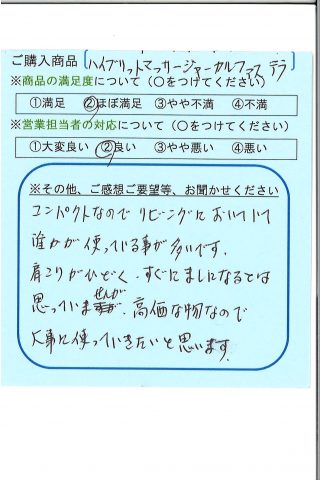 ご購入商品〔ハイブリットマッサージャーカルファス テラ
※商品の満足度について（○をつけてください）
①満足 ②ほぼ満足 ③やや不満 ④不満
※営業担当者の対応について（○をつけてください）
①大変良い ②良い ③やや悪い ④悪い
※その他、ご感想ご要望等、お聞かせください
コンパクトなので リビングにおいていて
誰かが使っている事が多いです。
肩こりがひどく、すぐにましになるとは
思っていませんが、高価な物なので
大事に使っていきたいと思います。